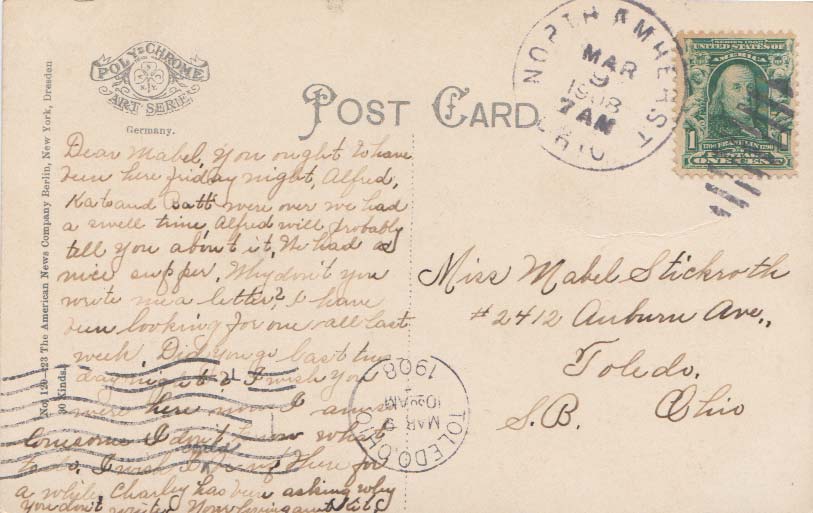 POLY-CHROME
ART SERIE
Germany.
No. 120-123 The American News Company Berlin, New York, Dresden
90 Kinds.
POST CARD
NORTH AMHERST
MAR
9
1908
7 AM
OHIO
SERIES 1902
UNITED STATES OF AMERICA
1 FRANKLIN 1
POSTAGE
ONE CENT
Dear Mabel, You ought to have
been here friday night, Alfred,
Kate and Batt were over we had
a swell time, Alfred will probably
tell you about it, We had a
nice supper, Why don't you
write me a letter? I have
been looking for one all last
week, Did you go last
day night? I wish you
were here now I am
lonesome I don't know what
to do. I wish I being there for
a while, Charley has been asking why
you don't write. Your loving aunt
Miss Mabel Stickroth
#2412 Auburn Ave.,
Toledo.
S.B. Ohio
TOLEDO, OHIO
MAR 9
10 30 AM
1908